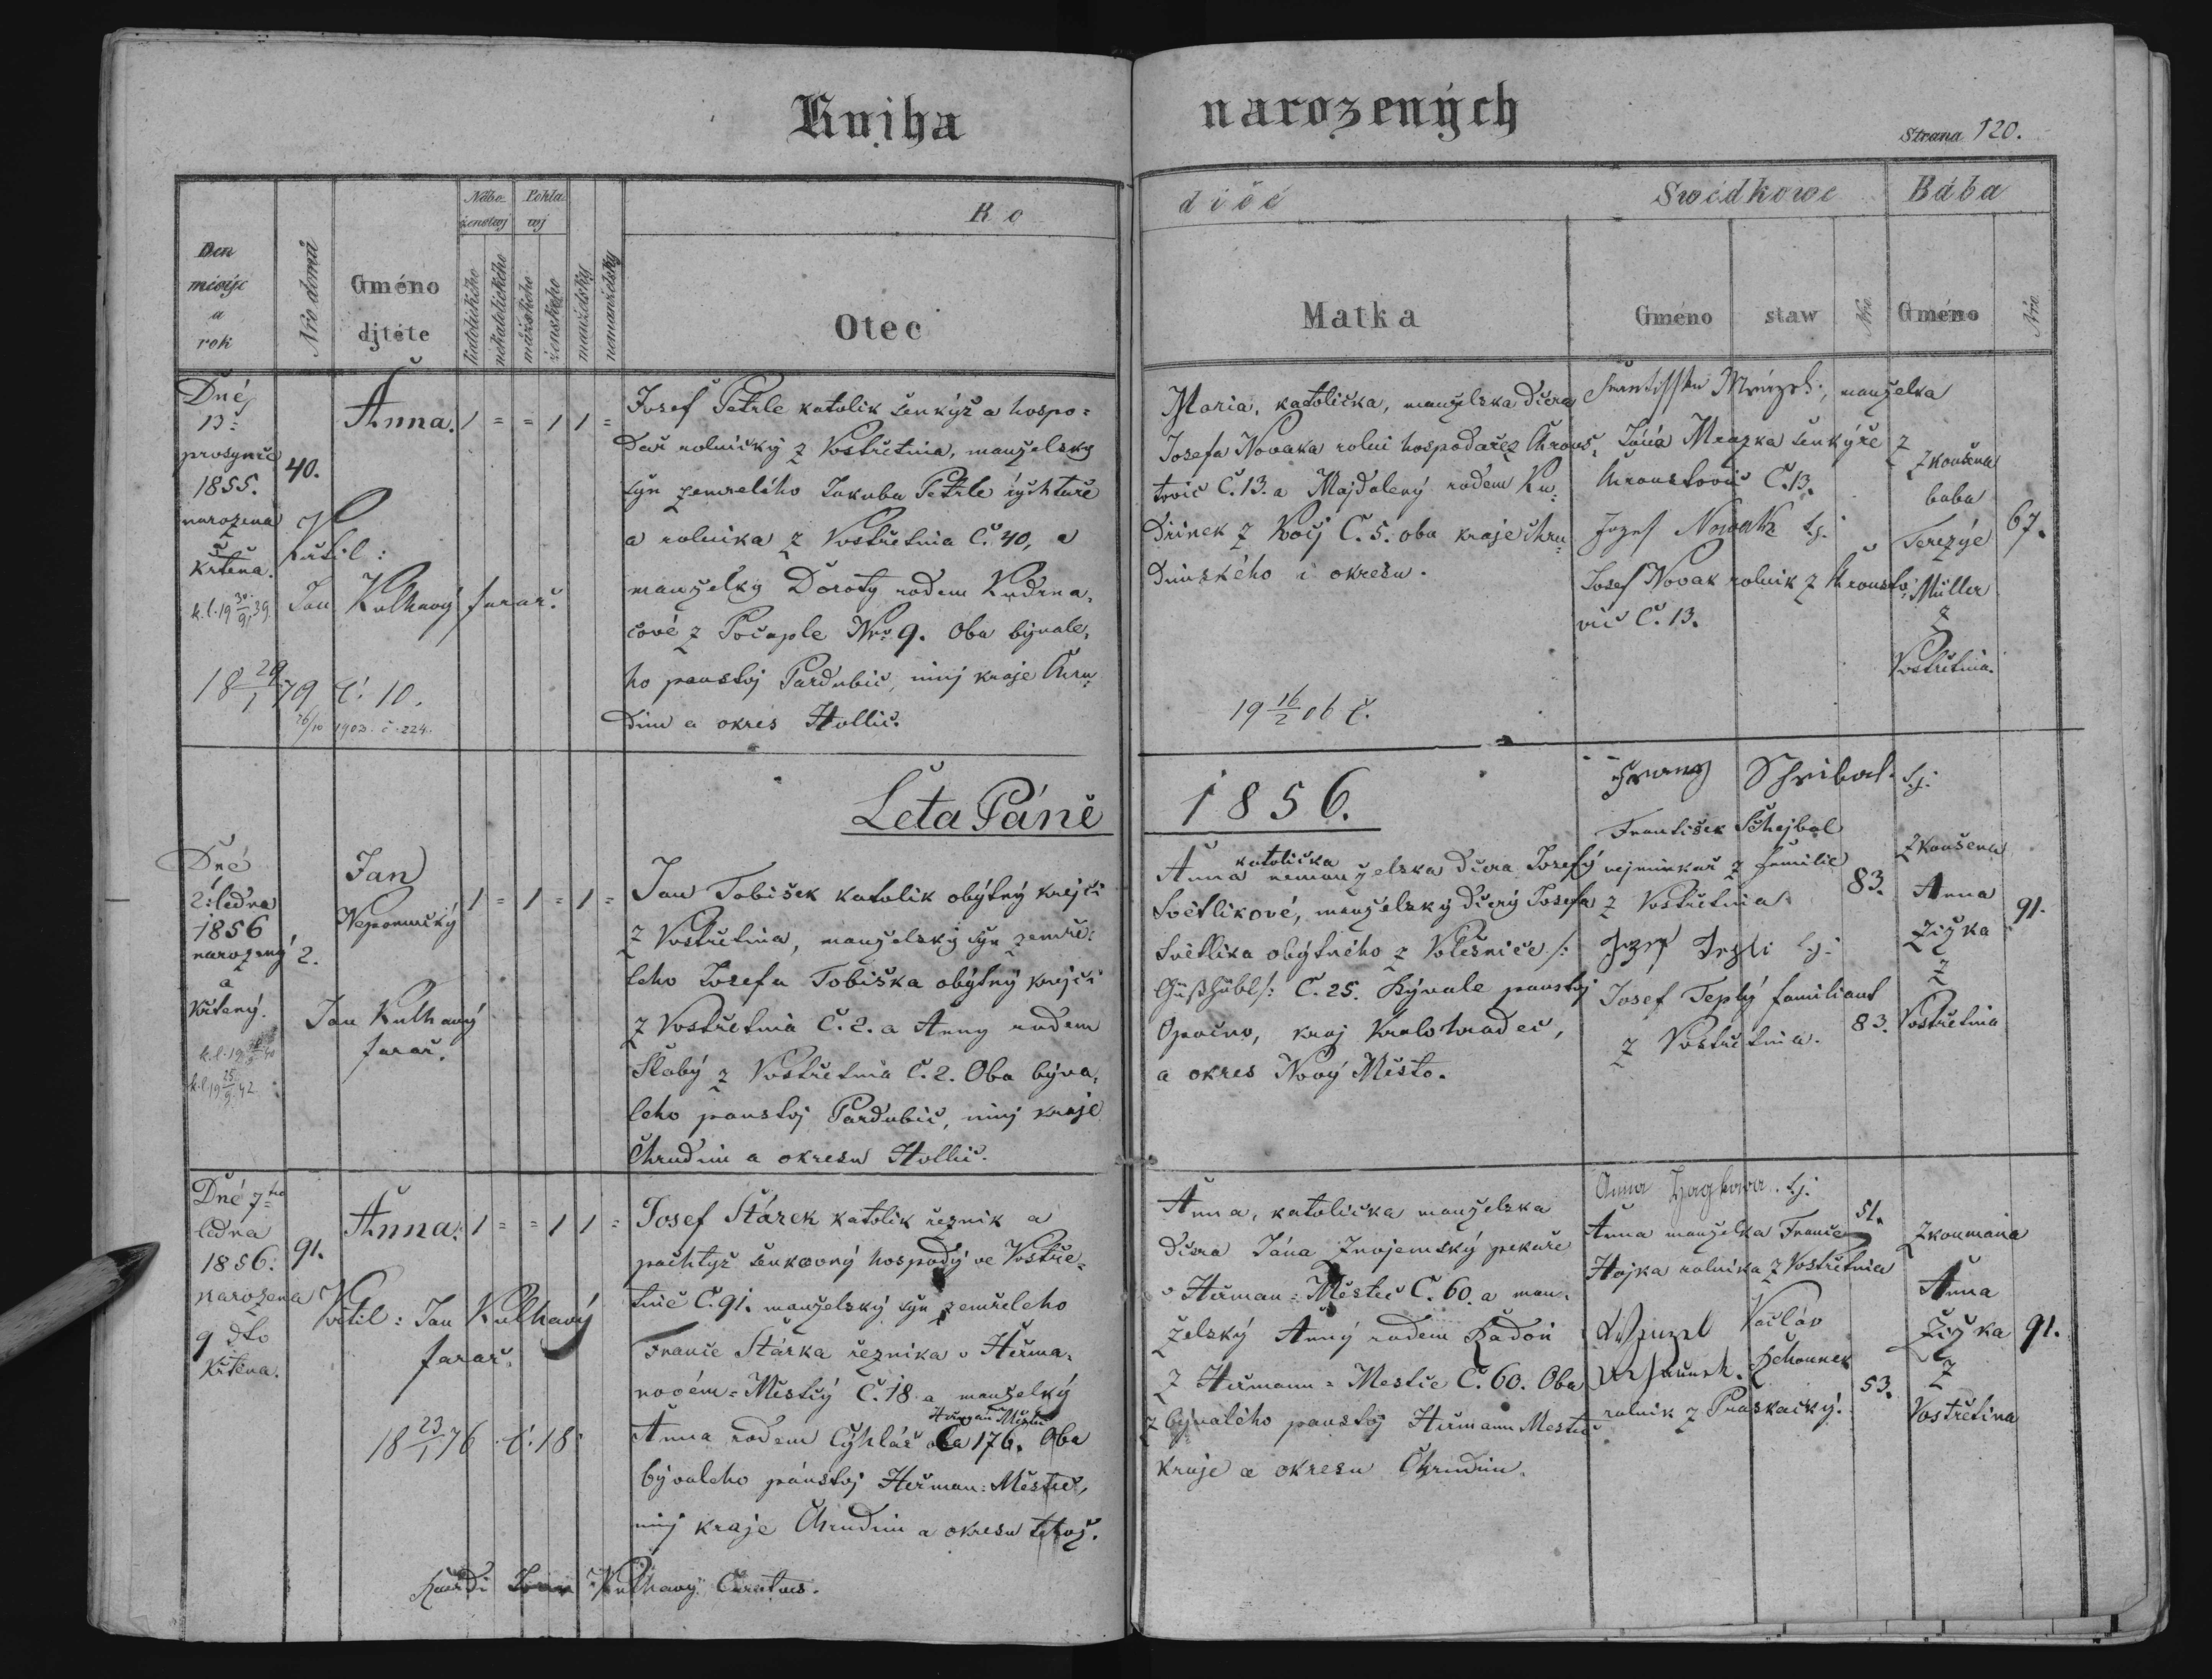 Kniha
narozených
Strana 120.
Den
měsýc
a
rok
Nro domů
Gméno
djtěte
Nábo-
ženstwj
Pohla-
wj
katolického
nekatolického
mužského
ženského
manželský
nemanželský
Ro
Otec
diče
Matka
Swědkowe
Gméno
staw
Nro.
Bába
Gméno
Nro.
Dné
13:
prosynce
1855.
narozena
a
Křtěna.
40.
křtil:
Jan Kulhavý farař.
k.l. 19 30/9 39.
18 29/1 79 č: 10.
26/10 1903. č. 224.
Anna. 1 = = 1 1 =
Josef Petrle katolik šenkýř a hospo=
dař rolnický z Vostřetina, manželsky
syn zemřelého Jakuba Petrle rychtaře
a rolnika z Vostřetina Č. 40, a
manželky Doroty rodem Kudrna,
čové z Počaple Nro 9. Oba bývale,
ho panstvj Pardubic, ninj kraje Chru,
dim a okres Hollic.
Maria, katolička, manželska dčera
Josefa Novaka rolni hospodaře z Chrous,
tovic Č. 13. a Majdaleny rodem Ku,
drinek z Kočj Č. 5. oba kraje Chru,
dimského i okresu.
19 16/2 06 č.
manželka
Jána Mrazka šenkýře z
Chroustovic Č. 13.
Jozef Nowak
Josef Novak rolnik z Chrousto,
vic Č. 13.
zkoušena
baba
Terezýe
Müller
z
Vostřetina.
67.
Leta Páně
1856.
Dné
2: ledna
1856
narozený
a
křtený.
2.
k.l. 19 25/9 42
Jan
Nepomucký
1 = 1 = 1 =
Jan Kulhavý
farař.
Jan Tobišek katolik obýtný krejči
z Vostřetina, manželský syn zemře,
leho Josefa Tobiška obýtný krejči
z Vostřetina Č. 2. a Anny rodem
Slabý z Vostřetina Č. 2. Oba býva,
leho panstvj Pardubic, ninj kraje
Chrudim a okresu Hollic.
katolička
Anna nemanželska dčera Josefý
Světlikové, manželský dčerý Josefa
Světlika obýtného z Volešnice /:
Gießhübl/: Č. 25. Bývale panstvj
Opočno, kraj Kralohradec,
a okres Nový Město.
Franz Scheibal
František Schejbal
vejminkař z familie
z Vostřetina
83.
Josef Teplý familiant
z Vostřetina.
83.
zkoušena
Anna
Žižka
z
Vostřetina
91.
Dné 7ho
ledna
1856.
narozena
9 dto
Křtěna.
91.
Anna. 1 = = 1 1 =
Křtil: Jan Kulhavý
farař.
18 23/1 76 č. 18.
Josef Stárek katolik řeznik a
pachtýř šenkovný hospodý ve Vostře=
tině Č. 91. manželský syn zemřeleho
Franče Stárka řeznika v Heřma,
novém=Městcý Č. 18 a manželký
Heřman Městec
Anna rodem Cýhlář Č. 176. Oba
bývaleho pánstvj Heřman=Městec,
ninj kraje Chrudim a okresu tehož.
Anna, katolička manželska
dčera Jána Znojemský pekaře
v Heřman=Městec Č. 60. a man,
želský Anný rodem Kadoň
z Heřmann=Mestce Č. 60. Oba
z bývalého panstvj Heřmann Mestec
kraje a okresu Chrudim.
Anna Hagkowa
51.
Anna manželka Franče
Hojka rolnika z Vostřetina
Wenzel Václáv
Schounek
rolnik z Praskačký.
53.
zkoumaná
Anna
Žižka
z
Vostřetina
91.
Kulhavý Curatus.